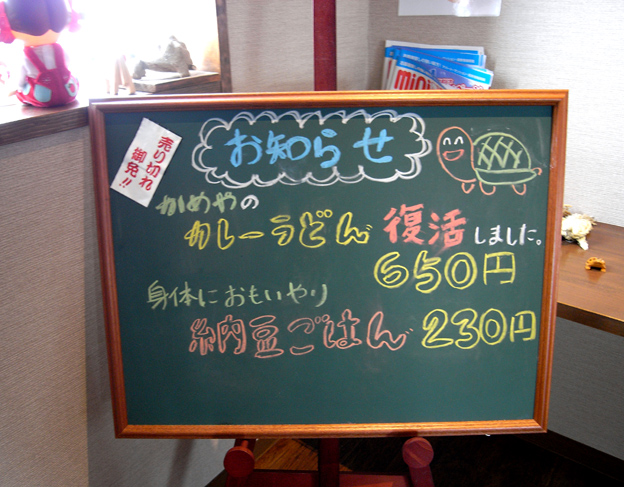 mini
お知らせ
売り切れ
御免!!
かめやの
カレーうどん 復活しました。
650円
身体におもいやり
納豆ごはん 230円